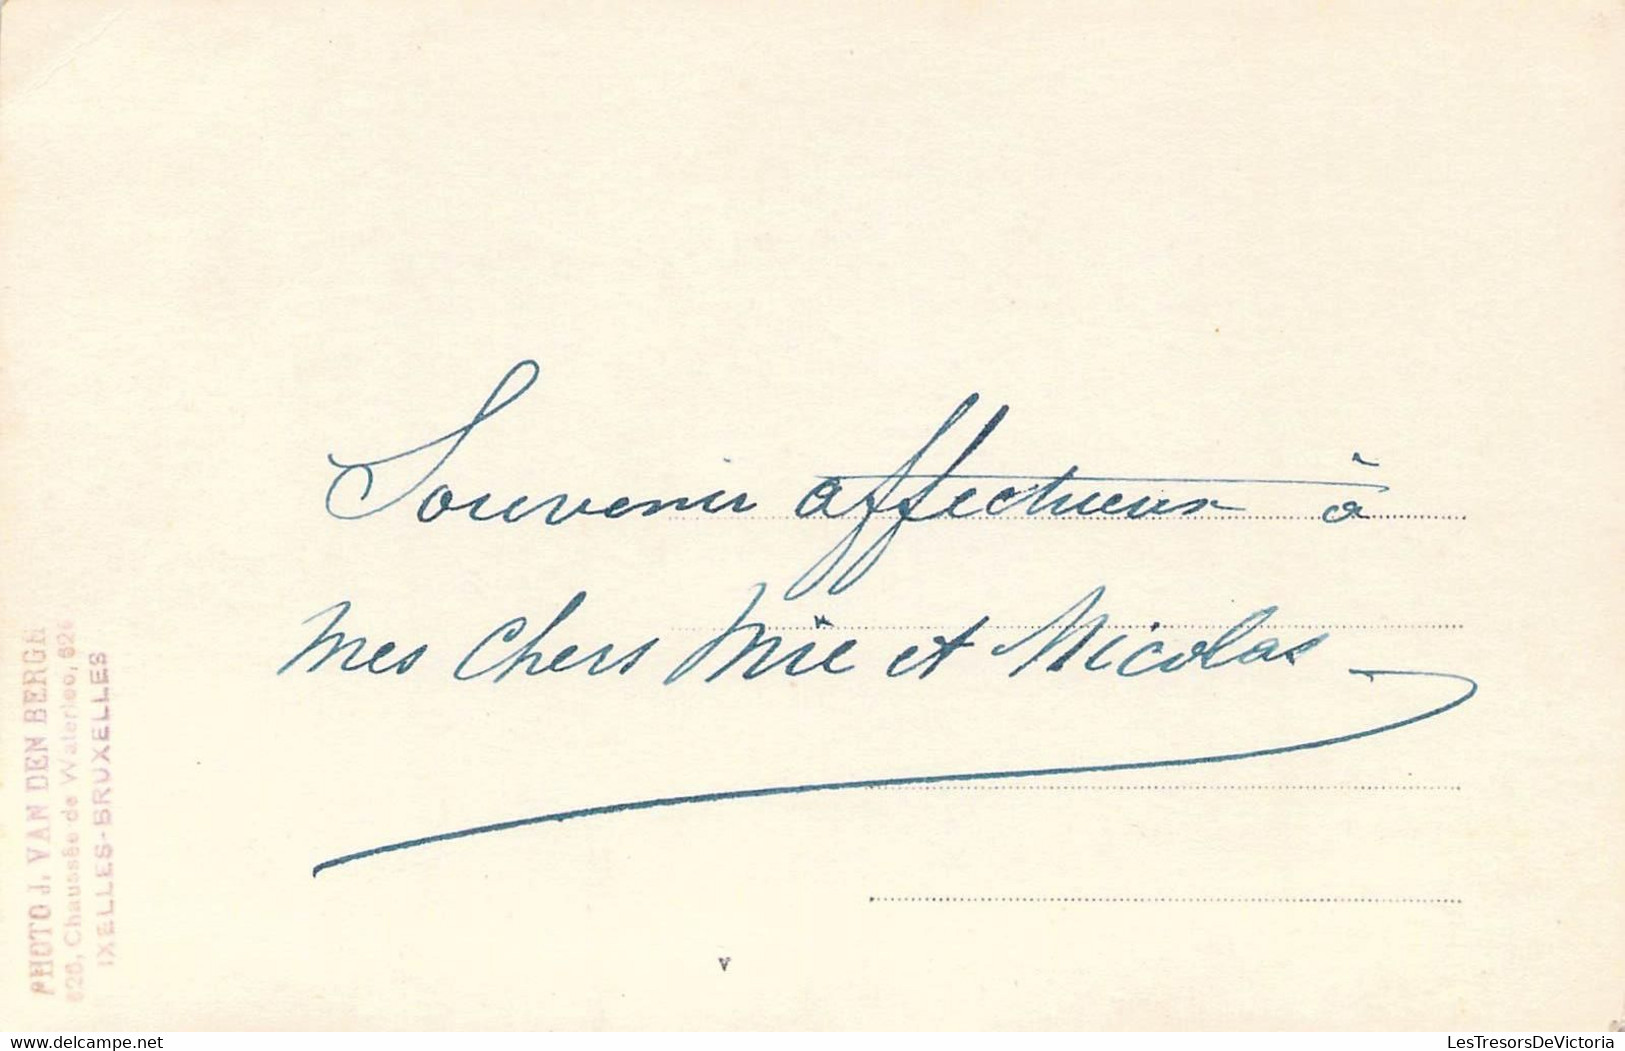 Souvenir affectueux à
mes chers Mie et Nicolas
PHOTO J. VAN DEN BERGH
626, Chaussée de Waterloo, 626
IXELLES-BRUXELLES
v
delcampe.net
LesTresorsDeVictoria